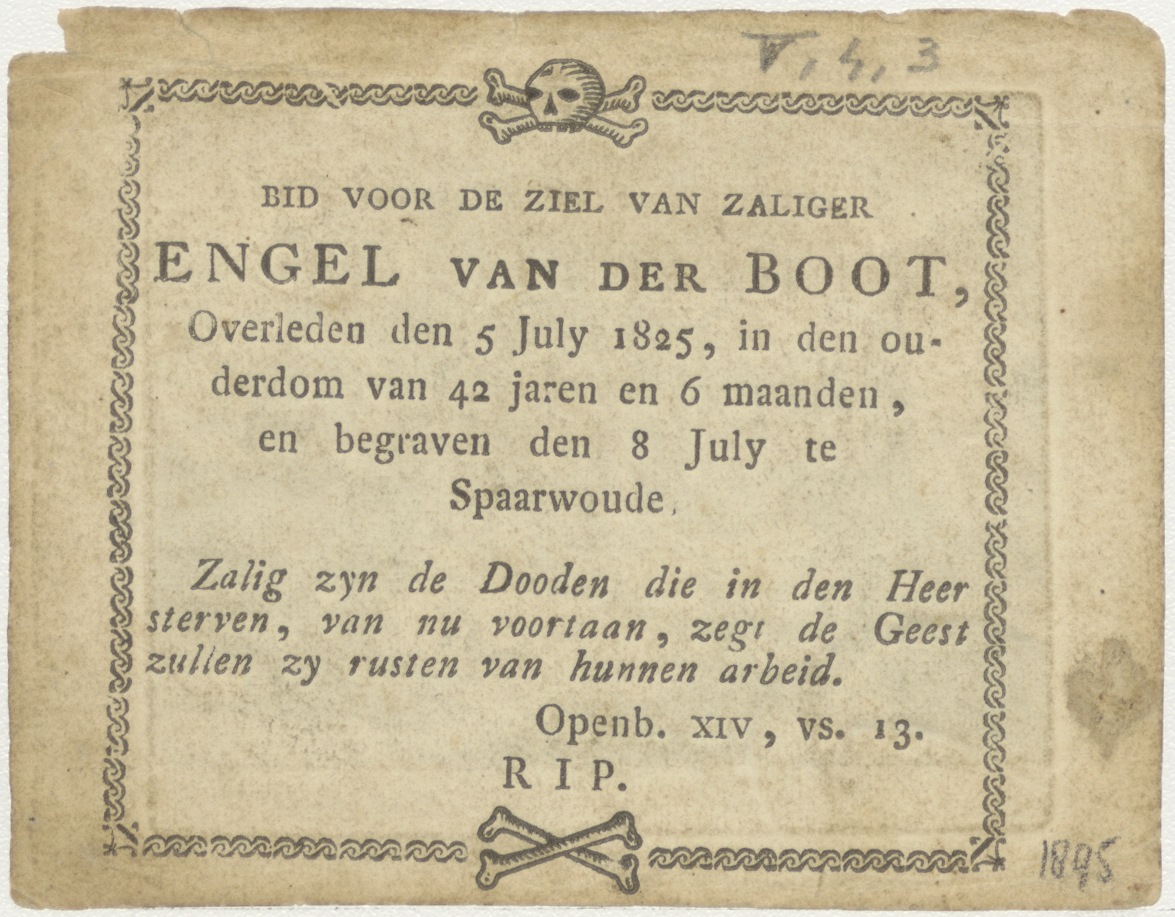 V, 4, 3
BID VOOR DE ZIEL VAN ZALIGER
ENGEL VAN DER BOOT,
Overleden den 5 July 1825, in den ou-
derdom van 42 jaren en 6 maanden,
en begraven den 8 July te
Spaarwoude.
Zalig zyn de Dooden die in den Heer
sterven, van nu voortaan, zegt de Geest
zullen zy rusten van hunnen arbeid.
Openb. XIV, vs. 13.
R I P.
1895